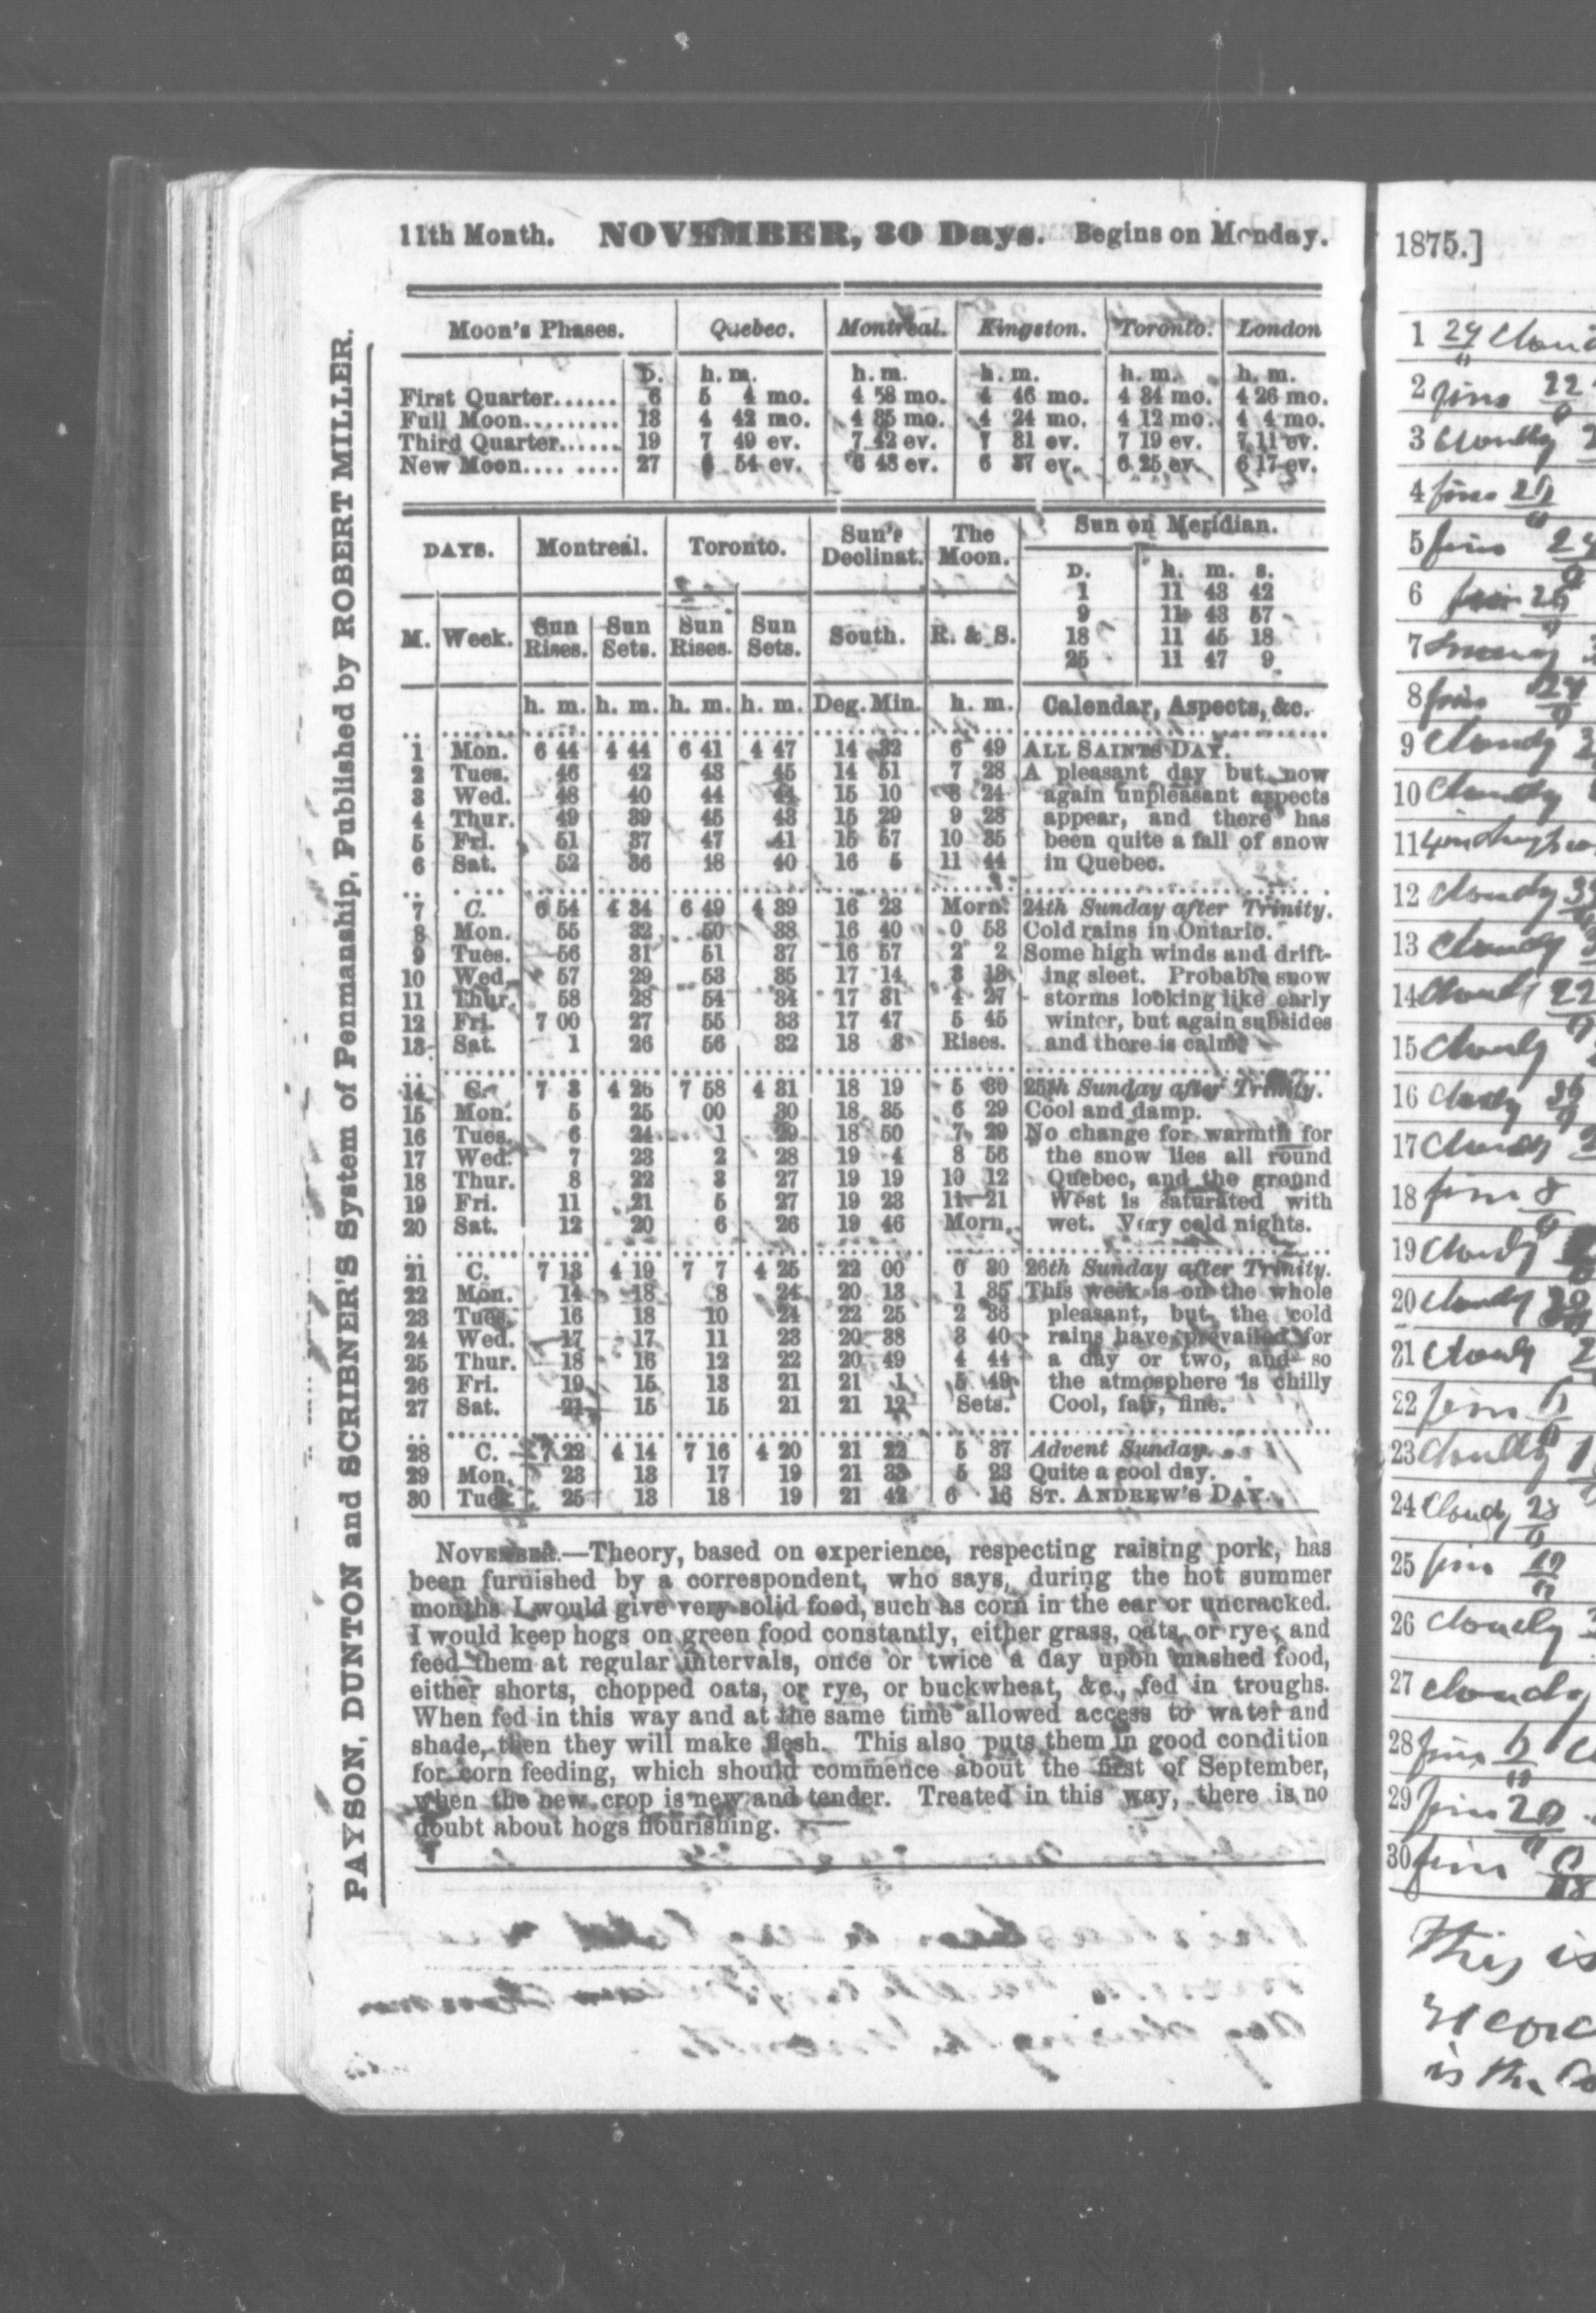 11th Month. NOVEMBER, 30 Days. Begins on Monday.
Moon's Phases. Quebec. Montreal. Kingston. Toronto. London
D. h. m. h. m. h. m. h. m. h. m.
First Quarter...... 6 5 4 mo. 4 58 mo. 4 46 mo. 4 34 mo. 4 26 mo.
Full Moon......... 13 4 42 mo. 4 35 mo. 4 24 mo. 4 12 mo. 4 4 mo.
Third Quarter...... 19 7 49 ev. 7 42 ev. 7 31 ev. 7 19 ev. 7 11 ev.
New Moon.... .... 27 6 54 ev. 6 48 ev. 6 37 ev. 6 25 ev. 6 17 ev.
DAYS. Montreal. Toronto. Sun's Declinat. The Moon. Sun on Meridian.
D. h. m. s.
1 11 43 42
9 11 43 57
18 11 45 18
25 11 47 9
M. Week. Sun Rises. Sun Sets. Sun Rises. Sun Sets. South. R. & S.
h. m. h. m. h. m. h. m. Deg. Min. h. m. Calendar, Aspects, &c.
1 Mon. 6 44 4 44 6 41 4 47 14 32 6 49 ALL SAINTS DAY.
2 Tues. 46 42 43 45 14 51 7 28 A pleasant day but now
3 Wed. 48 40 44 44 15 10 8 24 again unpleasant aspects
4 Thur. 49 39 45 43 15 29 9 28 appear, and there has
5 Fri. 51 37 47 41 15 57 10 35 been quite a fall of snow
6 Sat. 52 36 48 40 16 5 11 44 in Quebec.
7 C. 6 54 4 34 6 49 4 39 16 23 Morn. 24th Sunday after Trinity.
8 Mon. 55 32 50 38 16 40 0 53 Cold rains in Ontario.
9 Tues. 56 31 51 37 16 57 2 2 Some high winds and drift-
10 Wed. 57 29 53 35 17 14 3 13 ing sleet. Probable snow
11 Thur. 58 28 54 34 17 31 4 27 storms looking like early
12 Fri. 7 00 27 55 33 17 47 5 45 winter, but again subsides
13 Sat. 1 26 56 32 18 3 Rises. and there is calm.
14 C. 7 3 4 26 7 58 4 31 18 19 5 30 25th Sunday after Trinity.
15 Mon. 5 25 00 30 18 35 6 29 Cool and damp.
16 Tues. 6 24 1 29 18 50 7 29 No change for warmth for
17 Wed. 7 23 2 28 19 4 8 56 the snow lies all round
18 Thur. 8 22 3 27 19 19 10 12 Quebec, and the ground
19 Fri. 11 21 5 27 19 23 11 21 West is saturated with
20 Sat. 12 20 6 26 19 46 Morn. wet. Very cold nights.
21 C. 7 13 4 19 7 7 4 25 22 00 0 30 26th Sunday after Trinity.
22 Mon. 14 18 8 24 20 13 1 35 This week is on the whole
23 Tues. 16 18 10 24 22 25 2 36 pleasant, but the cold
24 Wed. 17 17 11 23 20 38 3 40 rains have prevailed for
25 Thur. 18 16 12 22 20 49 4 44 a day or two, and so
26 Fri. 19 15 13 21 21 1 5 49 the atmosphere is chilly
27 Sat. 21 15 15 21 21 12 Sets. Cool, fair, fine.
28 C. 7 22 4 14 7 16 4 20 21 22 5 37 Advent Sunday.
29 Mon. 23 13 17 19 21 33 5 23 Quite a cool day.
30 Tues. 25 13 18 19 21 42 6 16 ST. ANDREW'S DAY.
NOVEMBER.—Theory, based on experience, respecting raising pork, has
been furnished by a correspondent, who says, during the hot summer
months I would give very solid food, such as corn in the ear or uncracked.
I would keep hogs on green food constantly, either grass, oats, or rye, and
feed them at regular intervals, once or twice a day upon mashed food,
either shorts, chopped oats, or rye, or buckwheat, &c., fed in troughs.
When fed in this way and at the same time allowed access to water and
shade, then they will make flesh. This also puts them in good condition
for corn feeding, which should commence about the first of September,
when the new crop is new and tender. Treated in this way, there is no
doubt about hogs flourishing.
PAYSON, DUNTON and SCRIBNER'S System of Penmanship, Published by ROBERT MILLER.
1875.]
1 24
2 fine 22
3 cloudy
4 fine
5 fine
6
7
8 fine 24
9 cloudy
10 cloudy
11
12 cloudy
13 cloudy
14 cloudy 22
15 cloudy
16 cloudy
17 cloudy
18 fine 8
19 cloudy
20 cloudy
21 cloudy
22 fine
23 cloudy
24 cloudy 28
25 fine
26 cloudy
27 cloudy
28 fine
29 fine 20
30 fine
This is
is the